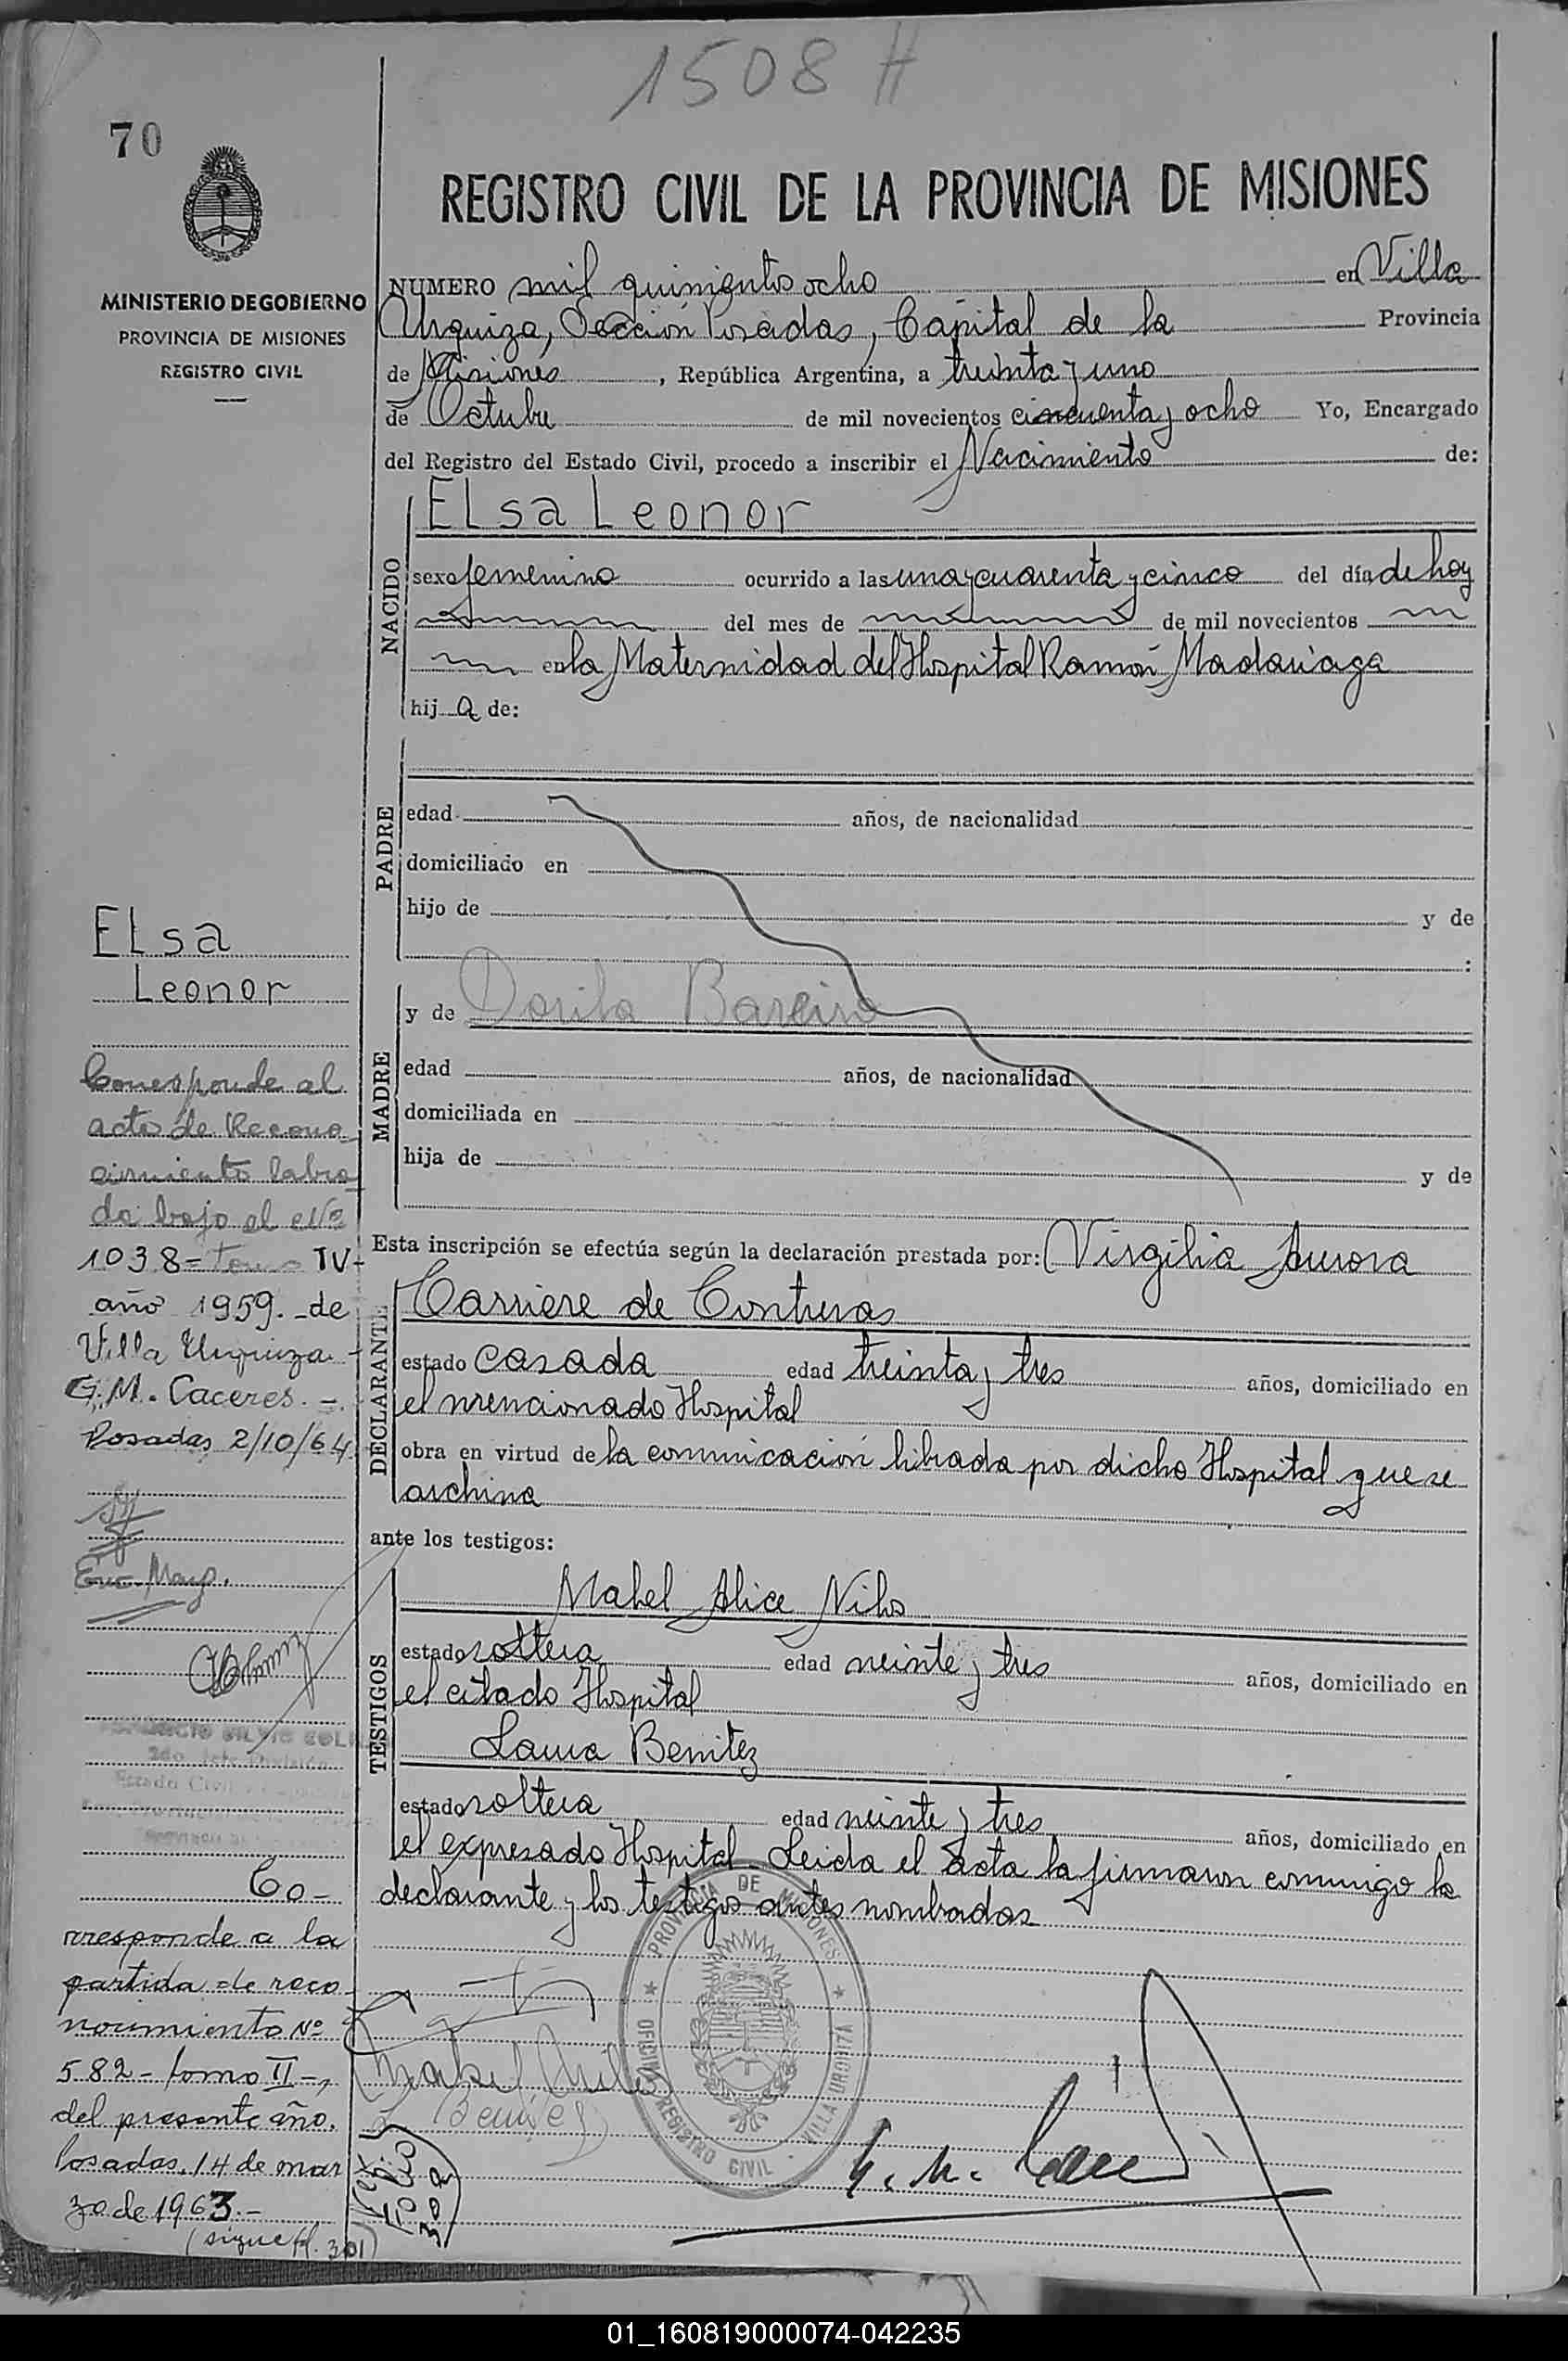 1508 H
70
REGISTRO CIVIL DE LA PROVINCIA DE MISIONES
MINISTERIO DE GOBIERNO
PROVINCIA DE MISIONES
REGISTRO CIVIL
NUMERO mil quinientos ocho en Villa
Urquiza, Sección Posadas, Capital de la Provincia
de Misiones, República Argentina, a treinta y uno
de Octubre de mil novecientos cincuenta y ocho Yo, Encargado
del Registro del Estado Civil, procedo a inscribir el Nacimiento de:
NACIDO
Elsa Leonor
sexo femenino ocurrido a las una y cuarenta y cinco del día de hoy
del mes de de mil novecientos
en la Maternidad del Hospital Ramón Madariaga
hij a de:
PADRE
edad años, de nacionalidad
domiciliado en
hijo de y de
:
MADRE
y de Dorila Bareiro
edad años, de nacionalidad
domiciliada en
hija de y de
Esta inscripción se efectúa según la declaración prestada por: Virgilia Aurora
DECLARANTE
Carriere de Contreras
estado casada edad treinta y tres años, domiciliado en
el mencionado Hospital
obra en virtud de la comunicación librada por dicho Hospital que se
archiva
ante los testigos:
TESTIGOS
Mabel Alice Nilo
estado soltera edad veinte y tres años, domiciliado en
el citado Hospital
Laura Benitez
estado soltera edad veinte y tres años, domiciliado en
el expresado Hospital - Leida el acta la firmaron conmigo la
declarante y los testigos antes nombrados
PROVINCIA DE MISIONES
OFICINA REGISTRO CIVIL - VILLA URQUIZA
Elsa
Leonor
Corresponde al
acta de Recono
cimiento labra
da bajo el Nº
1038- tomo IV-
año 1959.- de
Villa Urquiza -
G.M. Caceres. -
Posadas, 2/10/64
Co-
rresponde a la
partida de reco
nocimiento Nº
582- tomo II-,
del presente año.
Posadas, 14 de mar
zo de 1963.-
(sigue fl. 301)
Folio
302
01_160819000074-042235